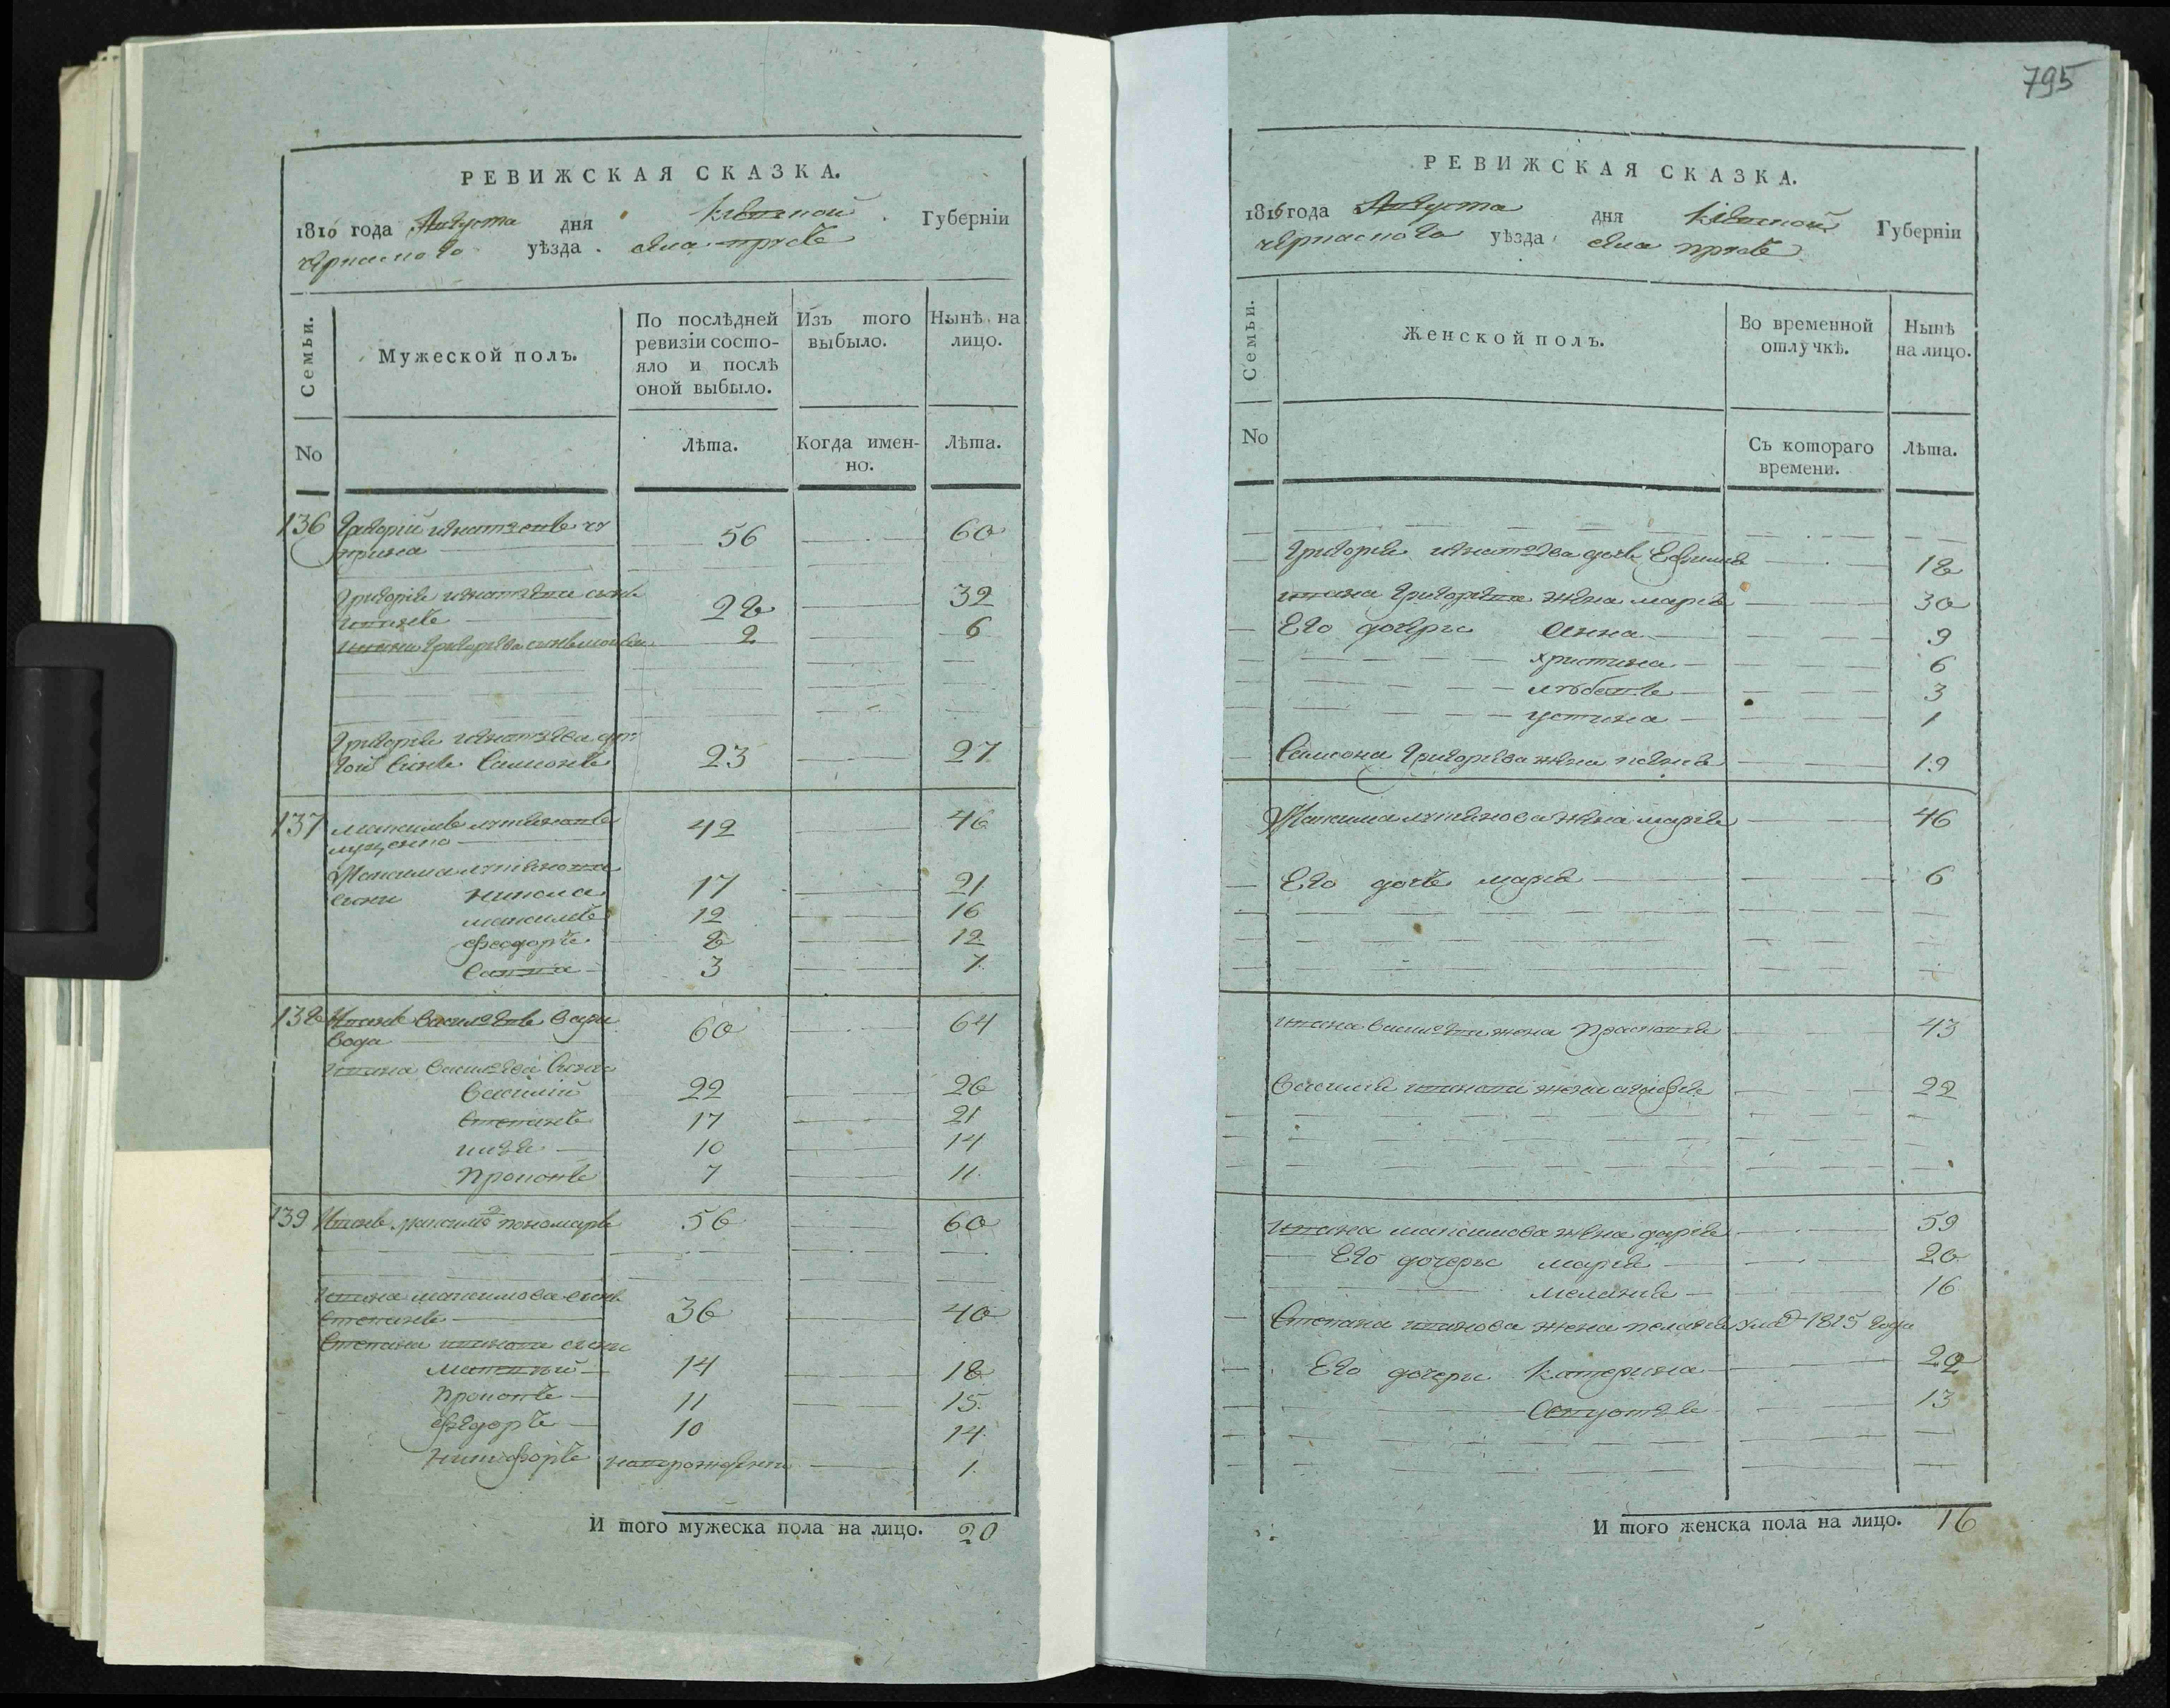 795
РЕВИЖСКАЯ СКАЗКА.
1816 года Августа дня Кіевской Губерніи
черкаского уѣзда. села
Семьи. Мужеской полъ. По послѣдней ревизіи состояло и послѣ оной выбыло. Изъ того выбыло. Нынѣ на лицо.
No Лѣта. Когда именно. Лѣта.
136 Григорій Игнатьевъ 56 60
Григорія Игнатьева сынъ
Иванъ 28 32
Ивана Григорьева сынъ 2 6
Григорія Игнатьева дру
гой Сынъ Самсонъ 23 27
137 Максимъ 42 46
луценко
Максима
сыны Никола 17 21
максимъ 12 16
феодоръ 8 12
Савва 3 7
138 Иванъ Васильевъ 60 64
вода
Ивана Васильева Сыны
Василій 22 26
Степанъ 17 21
илья 10 14
Прокопъ 7 11
139 Иванъ Максимовъ пономарь 56 60
Ивана максимова сынъ
Степанъ 36 40
Степана иванова сыны
Матвѣй 14 18
Прокопъ 11 15
фѣдоръ 10 14
Никифоръ новорожденъ 1
И того мужеска пола на лицо. 20
РЕВИЖСКАЯ СКАЗКА.
1816 года Августа дня Кіевской Губерніи
черкаского уѣзда села
Семьи. Женской полъ. Во временной отлучкѣ. Нынѣ на лицо.
No Съ котораго времени. Лѣта.
Григорія Игнатьева дочь Ефимія 18
ивана Григорьева жена марія 30
Его дочери Анна 9
христина 6
любовь 3
устина 1
Самсона Григорьева жена 19
Максима жена марія 46
Его дочь марія 6
ивана Васильева жена Прасковія 43
Василія иванова жена агафія 22
ивана максимова жена дарія 59
Его дочеры марія 20
меланія 16
Степана иванова жена пелагія 1815 года
Его дочеры Катерина 22
13
И того женска пола на лицо. 16